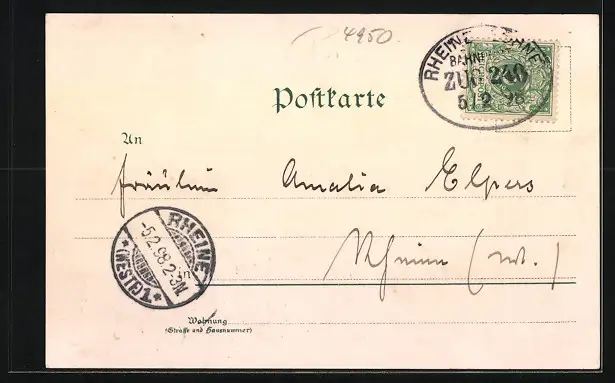 4950.
RHEINE LÖHNE
BAHNPOST
ZUG 240
5/2 98
Postkarte
An
Fräulein Amalia Elpers
RHEINE
-5.2.98.2-3N.
*(WESTF.)1*
in
Rheine (W.)
Wohnung
(Straße und Hausnummer)